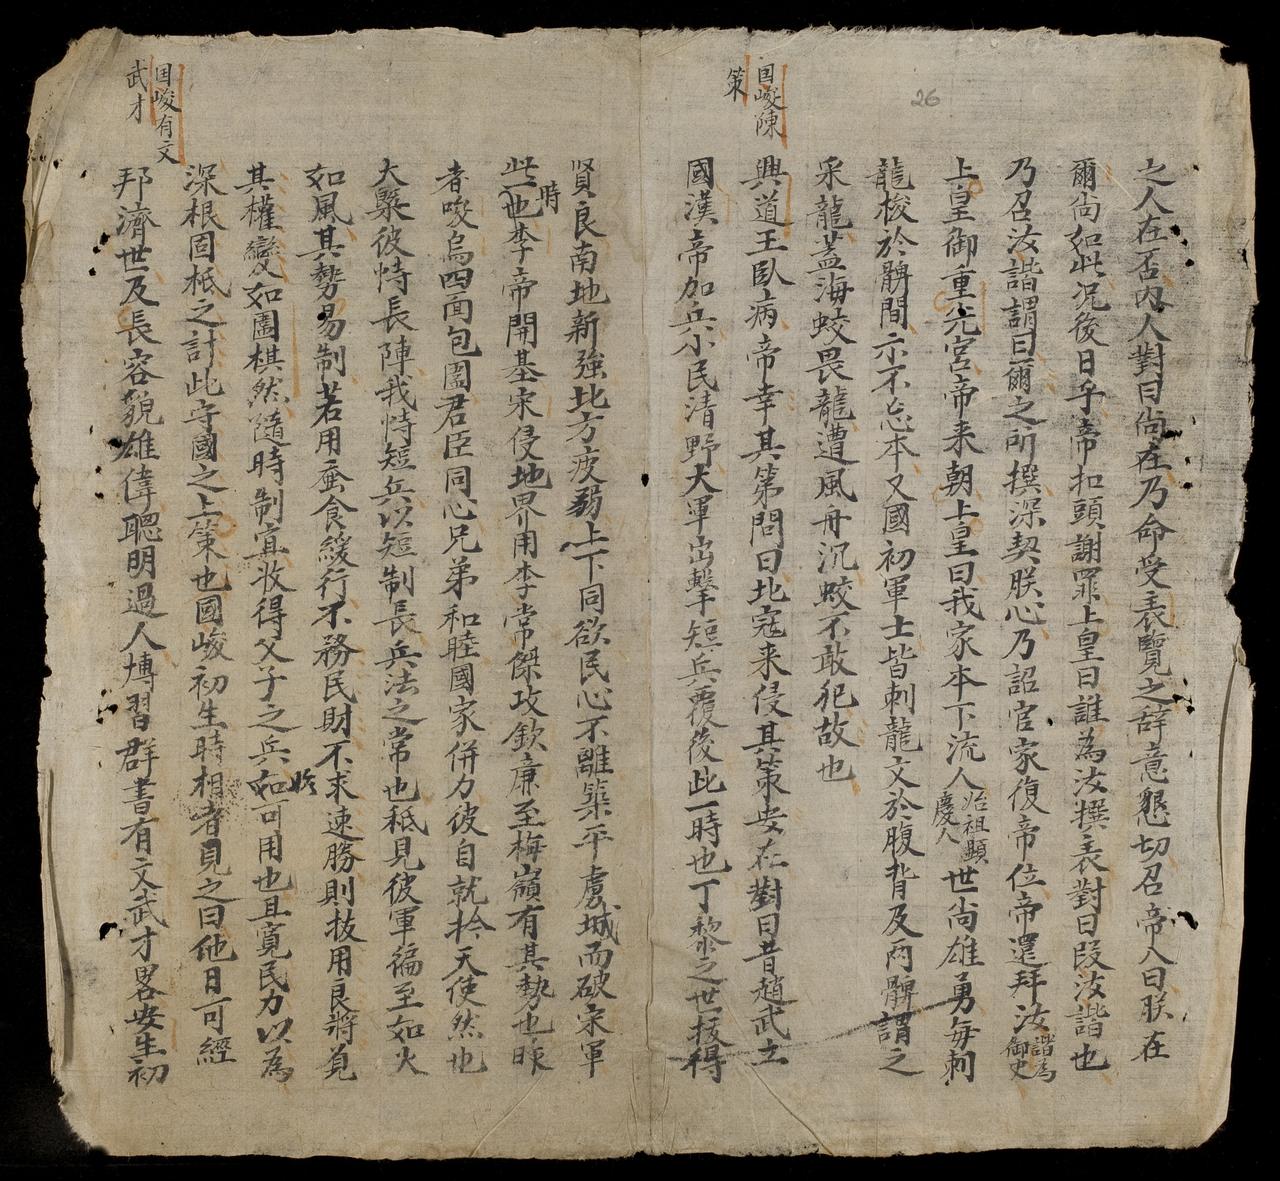 26
国峻陳
策
之人在否內人對曰尚在乃命受表覽之辞意懇切召帝入曰朕在
爾尚如此况後日乎帝扣頭謝罪上皇曰誰為汝撰表對曰段汝諧也
乃召汝諧謂曰爾之所撰深契朕心乃詔官家復帝位帝還拜汝諧為御史
上皇御重光宮帝来朝上皇曰我家本下流人始祖顯慶人世尚雄勇每刺
龍梭於髀間示不忘本又國初軍士皆刺龍文於腹背及两髀謂之
采龍蓋海蛟畏龍遭風舟沉蛟不敢犯故也
興道王臥病帝幸其第問曰北寇来侵其策安在對曰昔趙武立
國漢帝加兵小民清野大軍出擊短兵覆後此一時也丁黎之世拔得
賢良南地新強北方疲弱上下同欲民心不離築平虜城而破宋軍
此時也李帝開基宋侵地界用李常傑攻欽廉至梅嶺有其勢也昨
者唆烏四面包圍君臣同心兄弟和睦國家併力彼自就拎天使然也
大槩彼恃長陣我恃短兵以短制長兵法之常也秪見彼軍徧至如火
如風其勢易制若用蚕食緩行不務民財不求速勝則拔用良將覓
其權變如圍棋然隨時制宜收得父子之兵始可用也且寬民力以為
深根固柢之計此守國之上策也國峻初生時相者見之曰他日可經
邦濟世及長容貌雄偉聰明過人博習群書有文武才畧安生初
国峻有文
武才